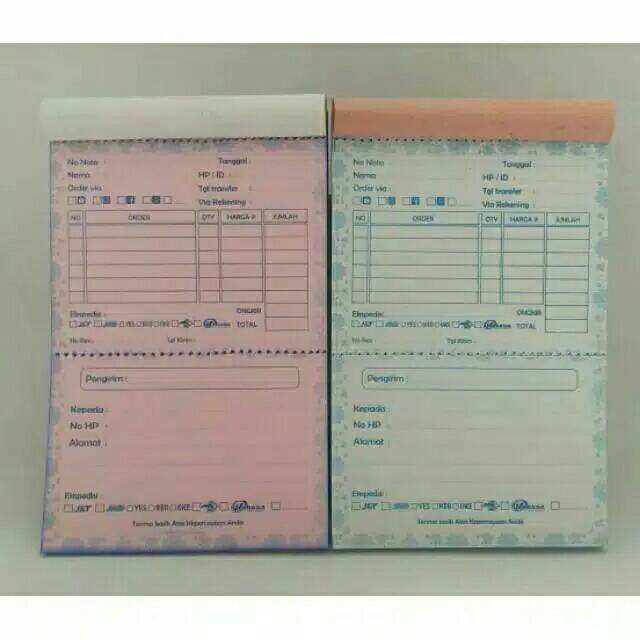 No Nota : Tanggal :
Nama : HP / ID :
Order via : Tgl transfer :
Via Rekening :
NO ORDER QTY HARGA @ JUMLAH
ONGKIR
Ekspedisi :
J&T JNE YES REG OKE TOTAL
No Resi : Tgl Kirim :
Pengirim :
Kepada :
No HP :
Alamat :
Ekspedisi :
J&T JNE YES REG OKE
Terima kasih Atas Kepercayaan Anda
No Nota : Tanggal :
Nama : HP / ID :
Order via : Tgl transfer :
Via Rekening :
NO ORDER QTY HARGA @ JUMLAH
ONGKIR
Ekspedisi :
J&T JNE YES REG OKE Wahana TOTAL
No Resi : Tgl Kirim :
Pengirim :
Kepada :
No HP :
Alamat :
Ekspedisi :
J&T JNE YES REG OKE Wahana
Terima kasih Atas Kepercayaan Anda